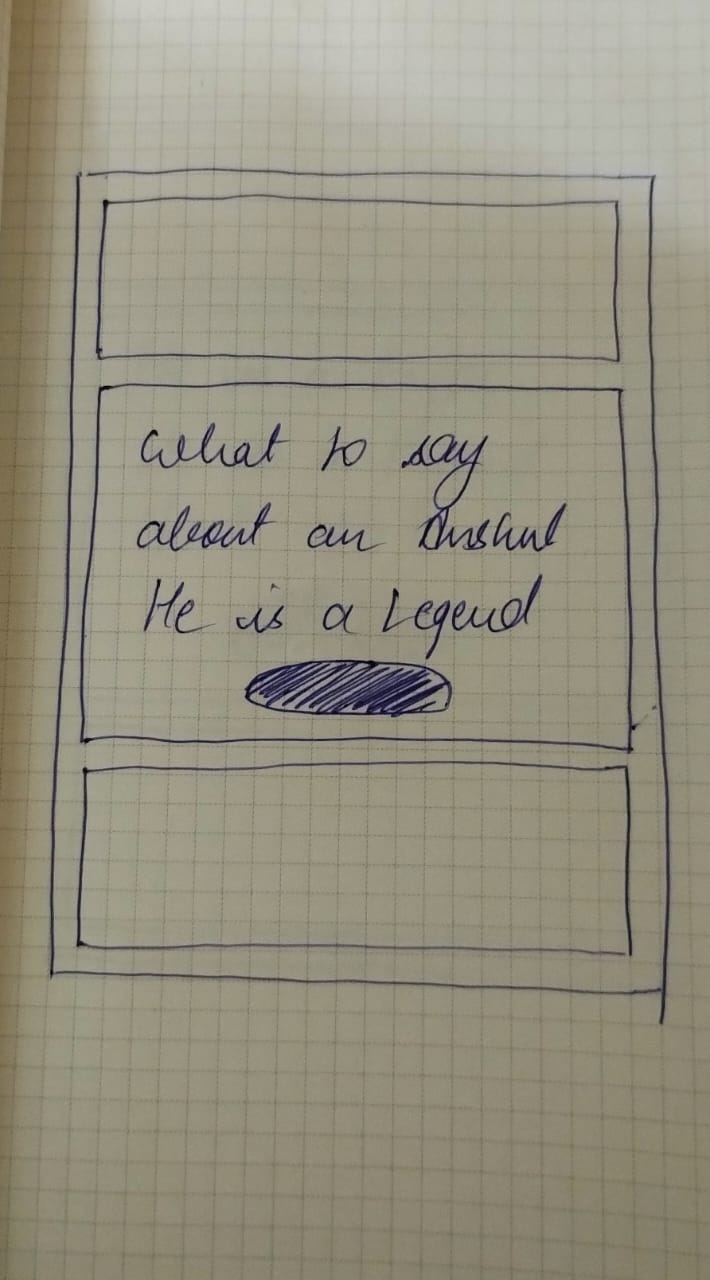 What to say
about an Anshul
He is a Legend